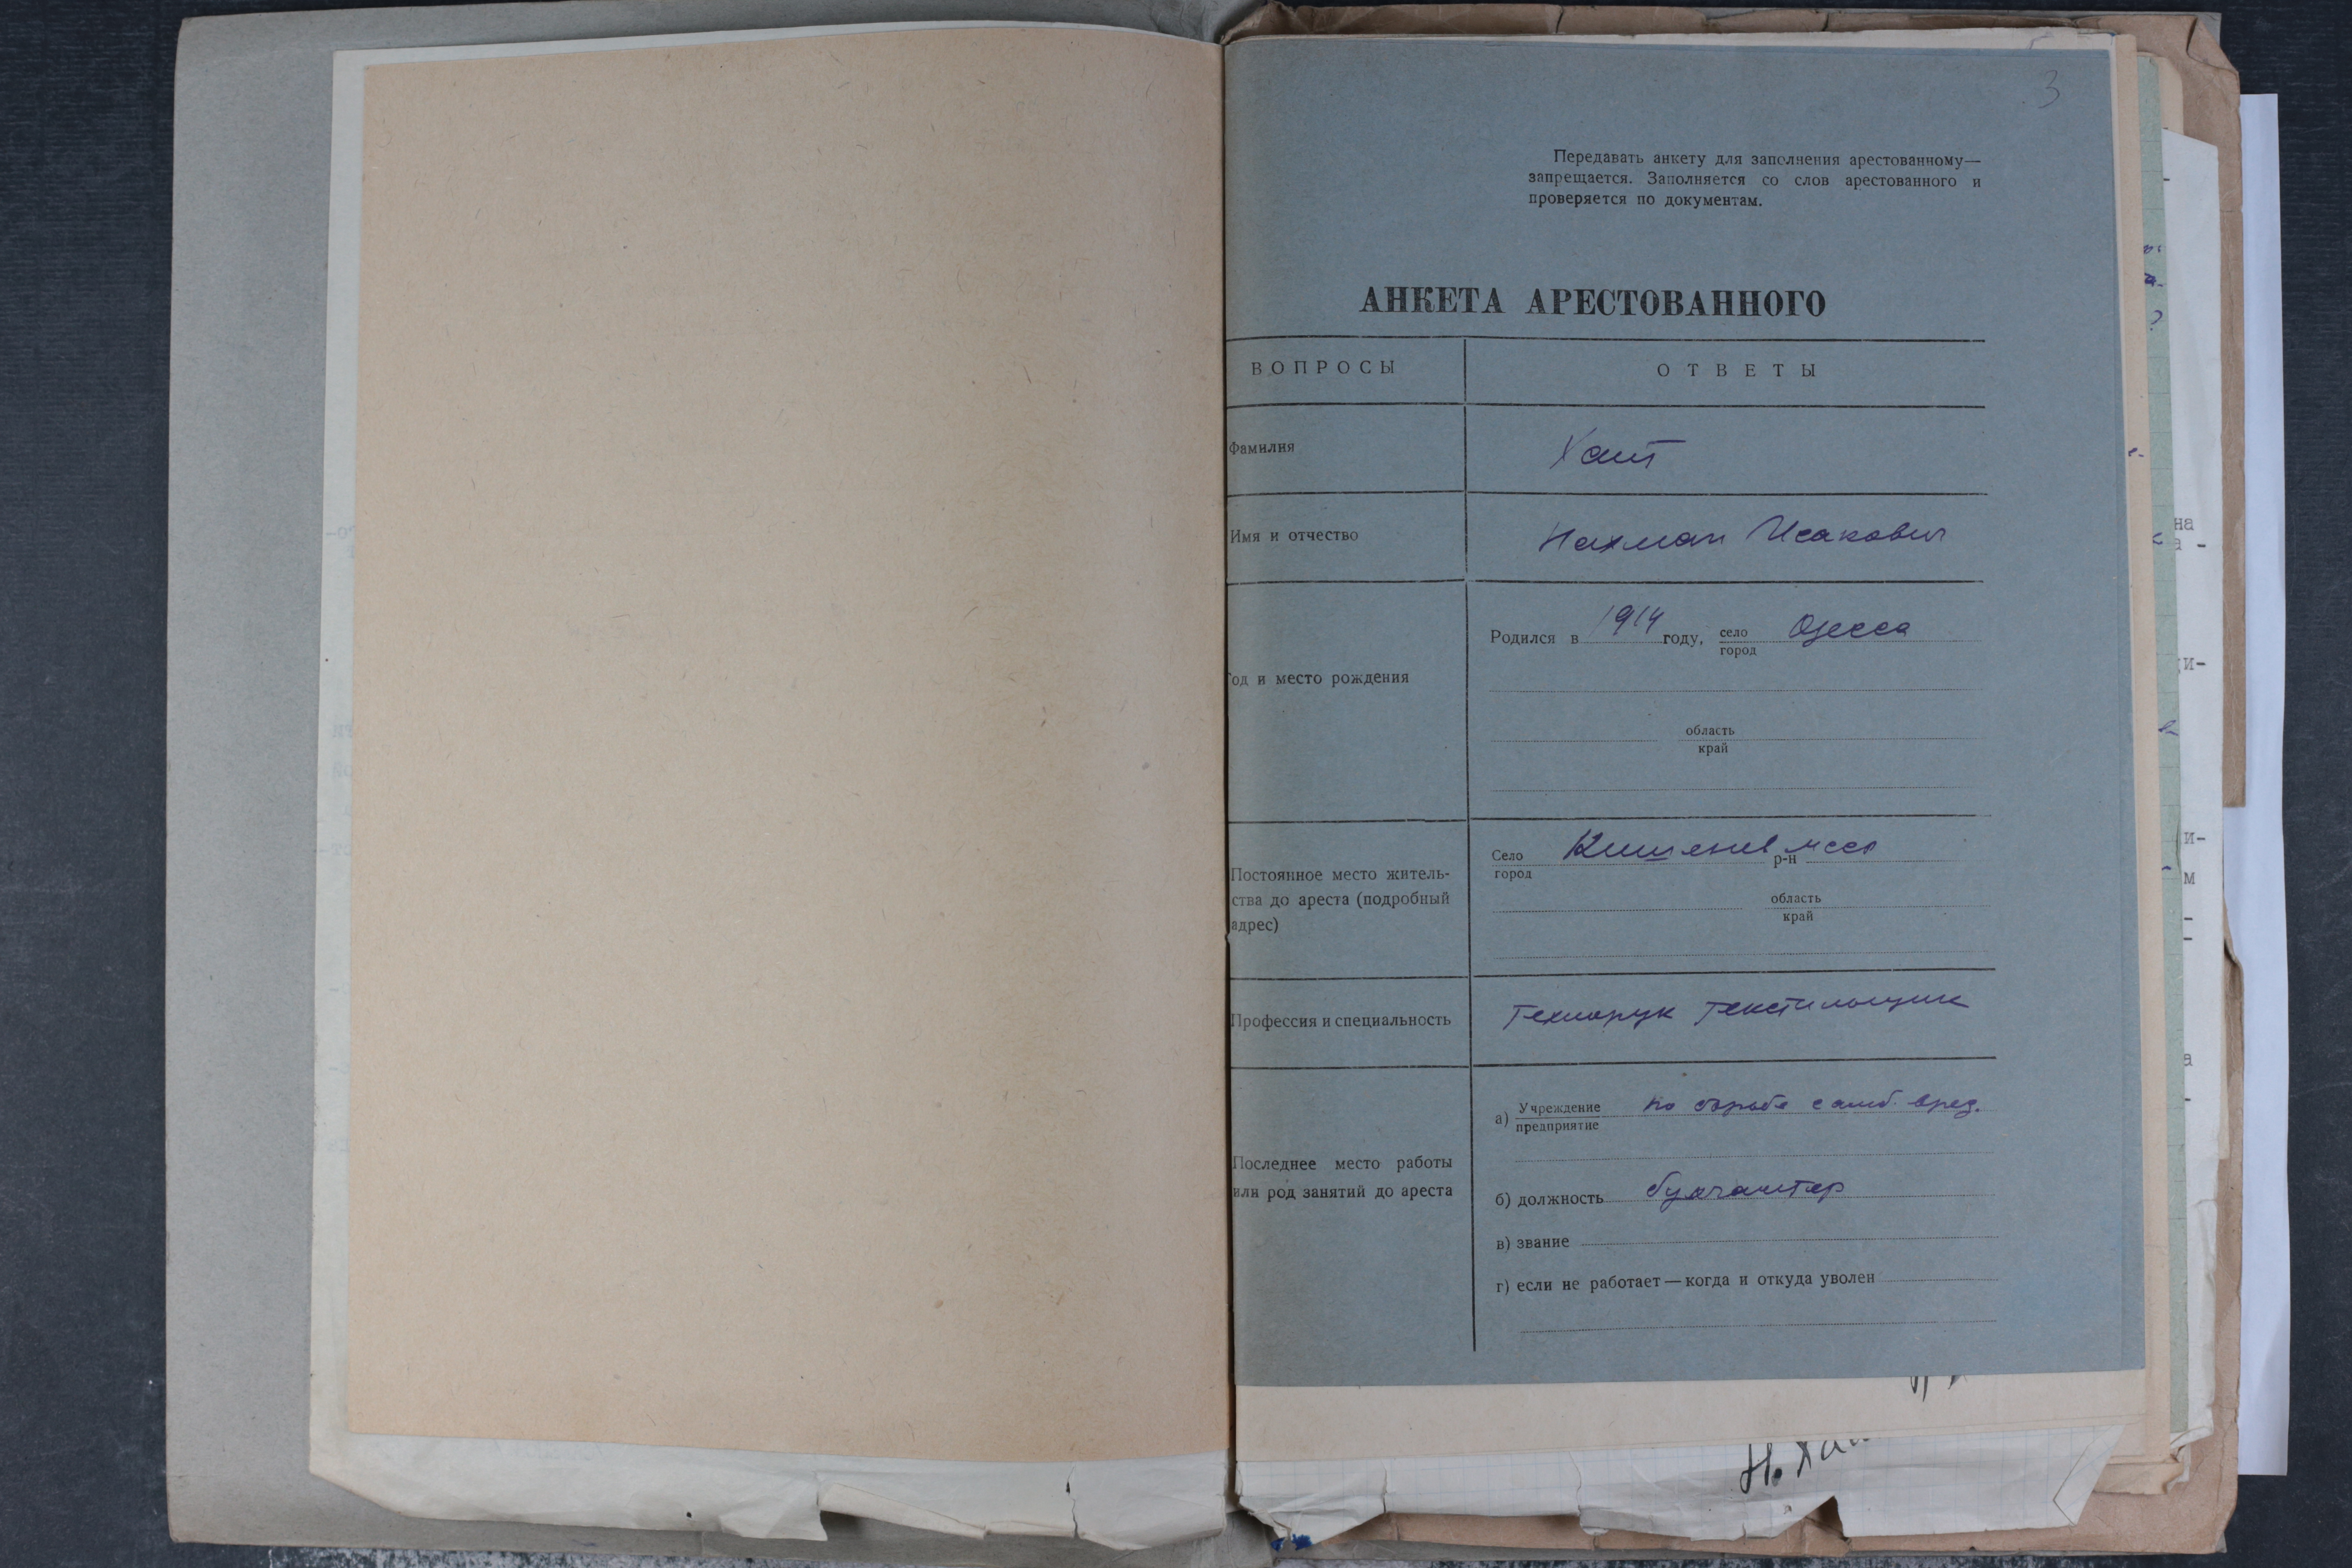 3
Передавать анкету для заполнения арестованному—
запрещается. Заполняется со слов арестованного и
проверяется по документам.
АНКЕТА АРЕСТОВАННОГО
ВОПРОСЫ ОТВЕТЫ
Фамилия Хаит
Имя и отчество Нахман Исакович
Родился в 1914 году, село Одесса
город
од и место рождения
область
край
Село Кишенев мсср р-н
город
Постоянное место житель-
ства до ареста (подробный
адрес)
область
край
Профессия и специальность Технорук текстильщик
а) Учреждение по борьбе с амб. вред.
предприятие
Последнее место работы
или род занятий до ареста
б) должность бухгалтер
в) звание
г) если не работает — когда и откуда уволен